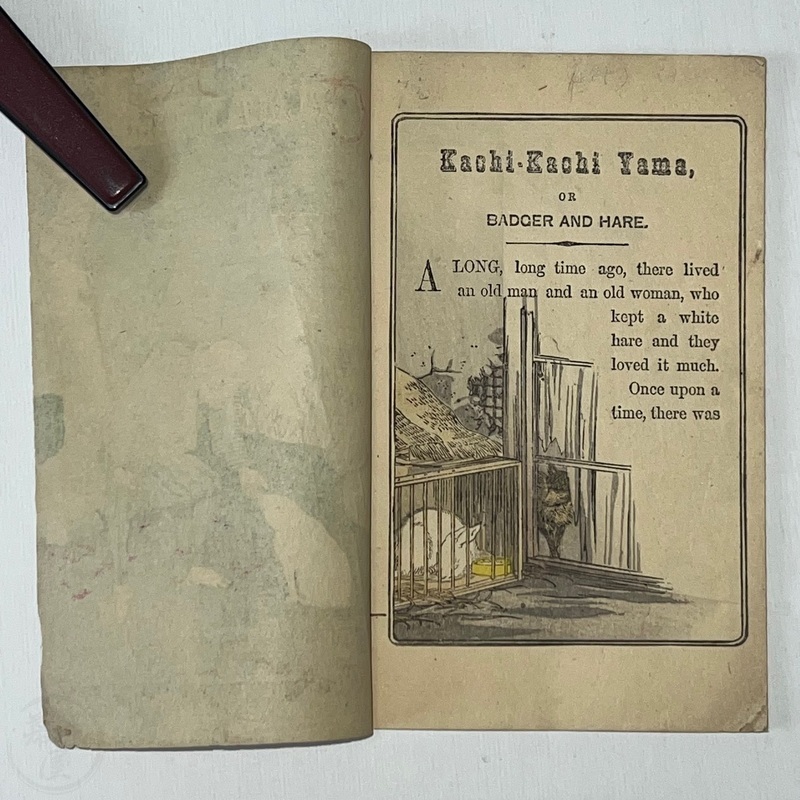 Kachi-Kachi Yama,
OR
BADGER AND HARE.
A LONG, long time ago, there lived
an old man and an old woman, who
kept a white
hare and they
loved it much.
Once upon a
time, there was